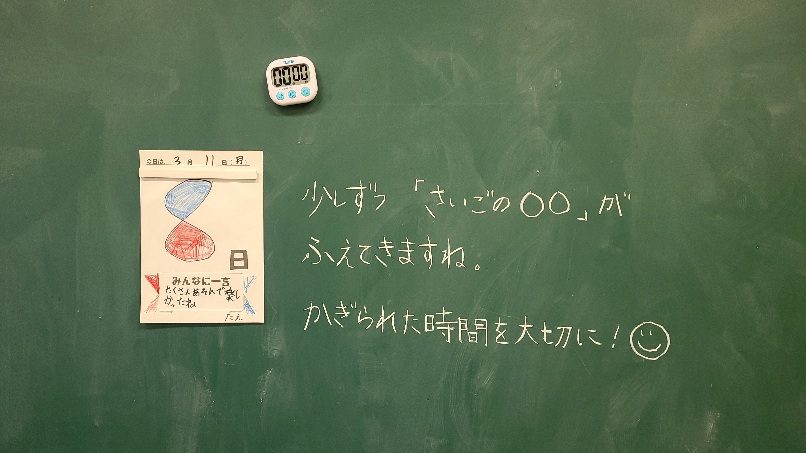 00:00
今日は 3月 11日(月)
日
みんなに一言
たくさんあそんで楽し
かったね
少しずつ「さいごの〇〇」が
ふえてきますね。
かぎられた時間を大切に!